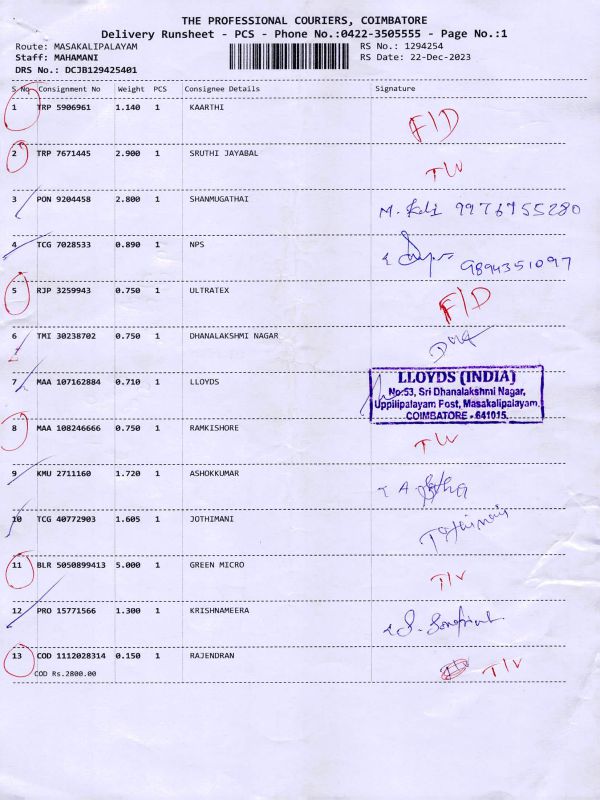 THE PROFESSIONAL COURIERS, COIMBATORE
Delivery Runsheet - PCS - Phone No.:0422-3505555 - Page No.:1
Route: MASAKALIPALAYAM RS No.: 1294254
Staff: MAHAMANI RS Date: 22-Dec-2023
DRS No.: DCJB129425401
S No Consignment No Weight PCS Consignee Details Signature
1 TRP 5906961 1.140 1 KAARTHI F/D
2 TRP 7671445 2.900 1 SRUTHI JAYABAL
3 PON 9204458 2.800 1 SHANMUGATHAI M.
4 TCG 7028533 0.890 1 NPS 9894351097
5 RJP 3259943 0.750 1 ULTRATEX F/D
6 TMI 30238702 0.750 1 DHANALAKSHMI NAGAR
7 MAA 107162884 0.710 1 LLOYDS
LLOYDS (INDIA)
No:53, Sri Dhanalakshmi Nagar,
Uppilipalayam Post, Masakalipalayam,
COIMBATORE - 641015.
8 MAA 108246666 0.750 1 RAMKISHORE
9 KMU 2711160 1.720 1 ASHOKKUMAR
10 TCG 40772903 1.605 1 JOTHIMANI
11 BLR 5050899413 5.000 1 GREEN MICRO
12 PRO 15771566 1.300 1 KRISHNAMEERA
13 COD 1112028314 0.150 1 RAJENDRAN
COD Rs.2800.00